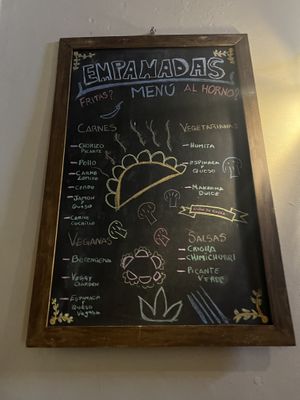 EMPANADAS
FRITAS? MENÚ AL HORNO?
CARNES
CHORIZO
PICANTE
POLLO
CARNE
CERDO
JAMON
y
QUESO
CARNE
CUCHILLO
VEGETARIANAS
HUMITA
ESPINACA
y
QUESO
MANZANA
DULCE
VEGANAS
BERENGENA
VEGGY
GARDEN
ESPINACA
QUESO
VEGANO
SALSAS
CRIOLLA
CHIMICHURRI
PICANTE
VERDE